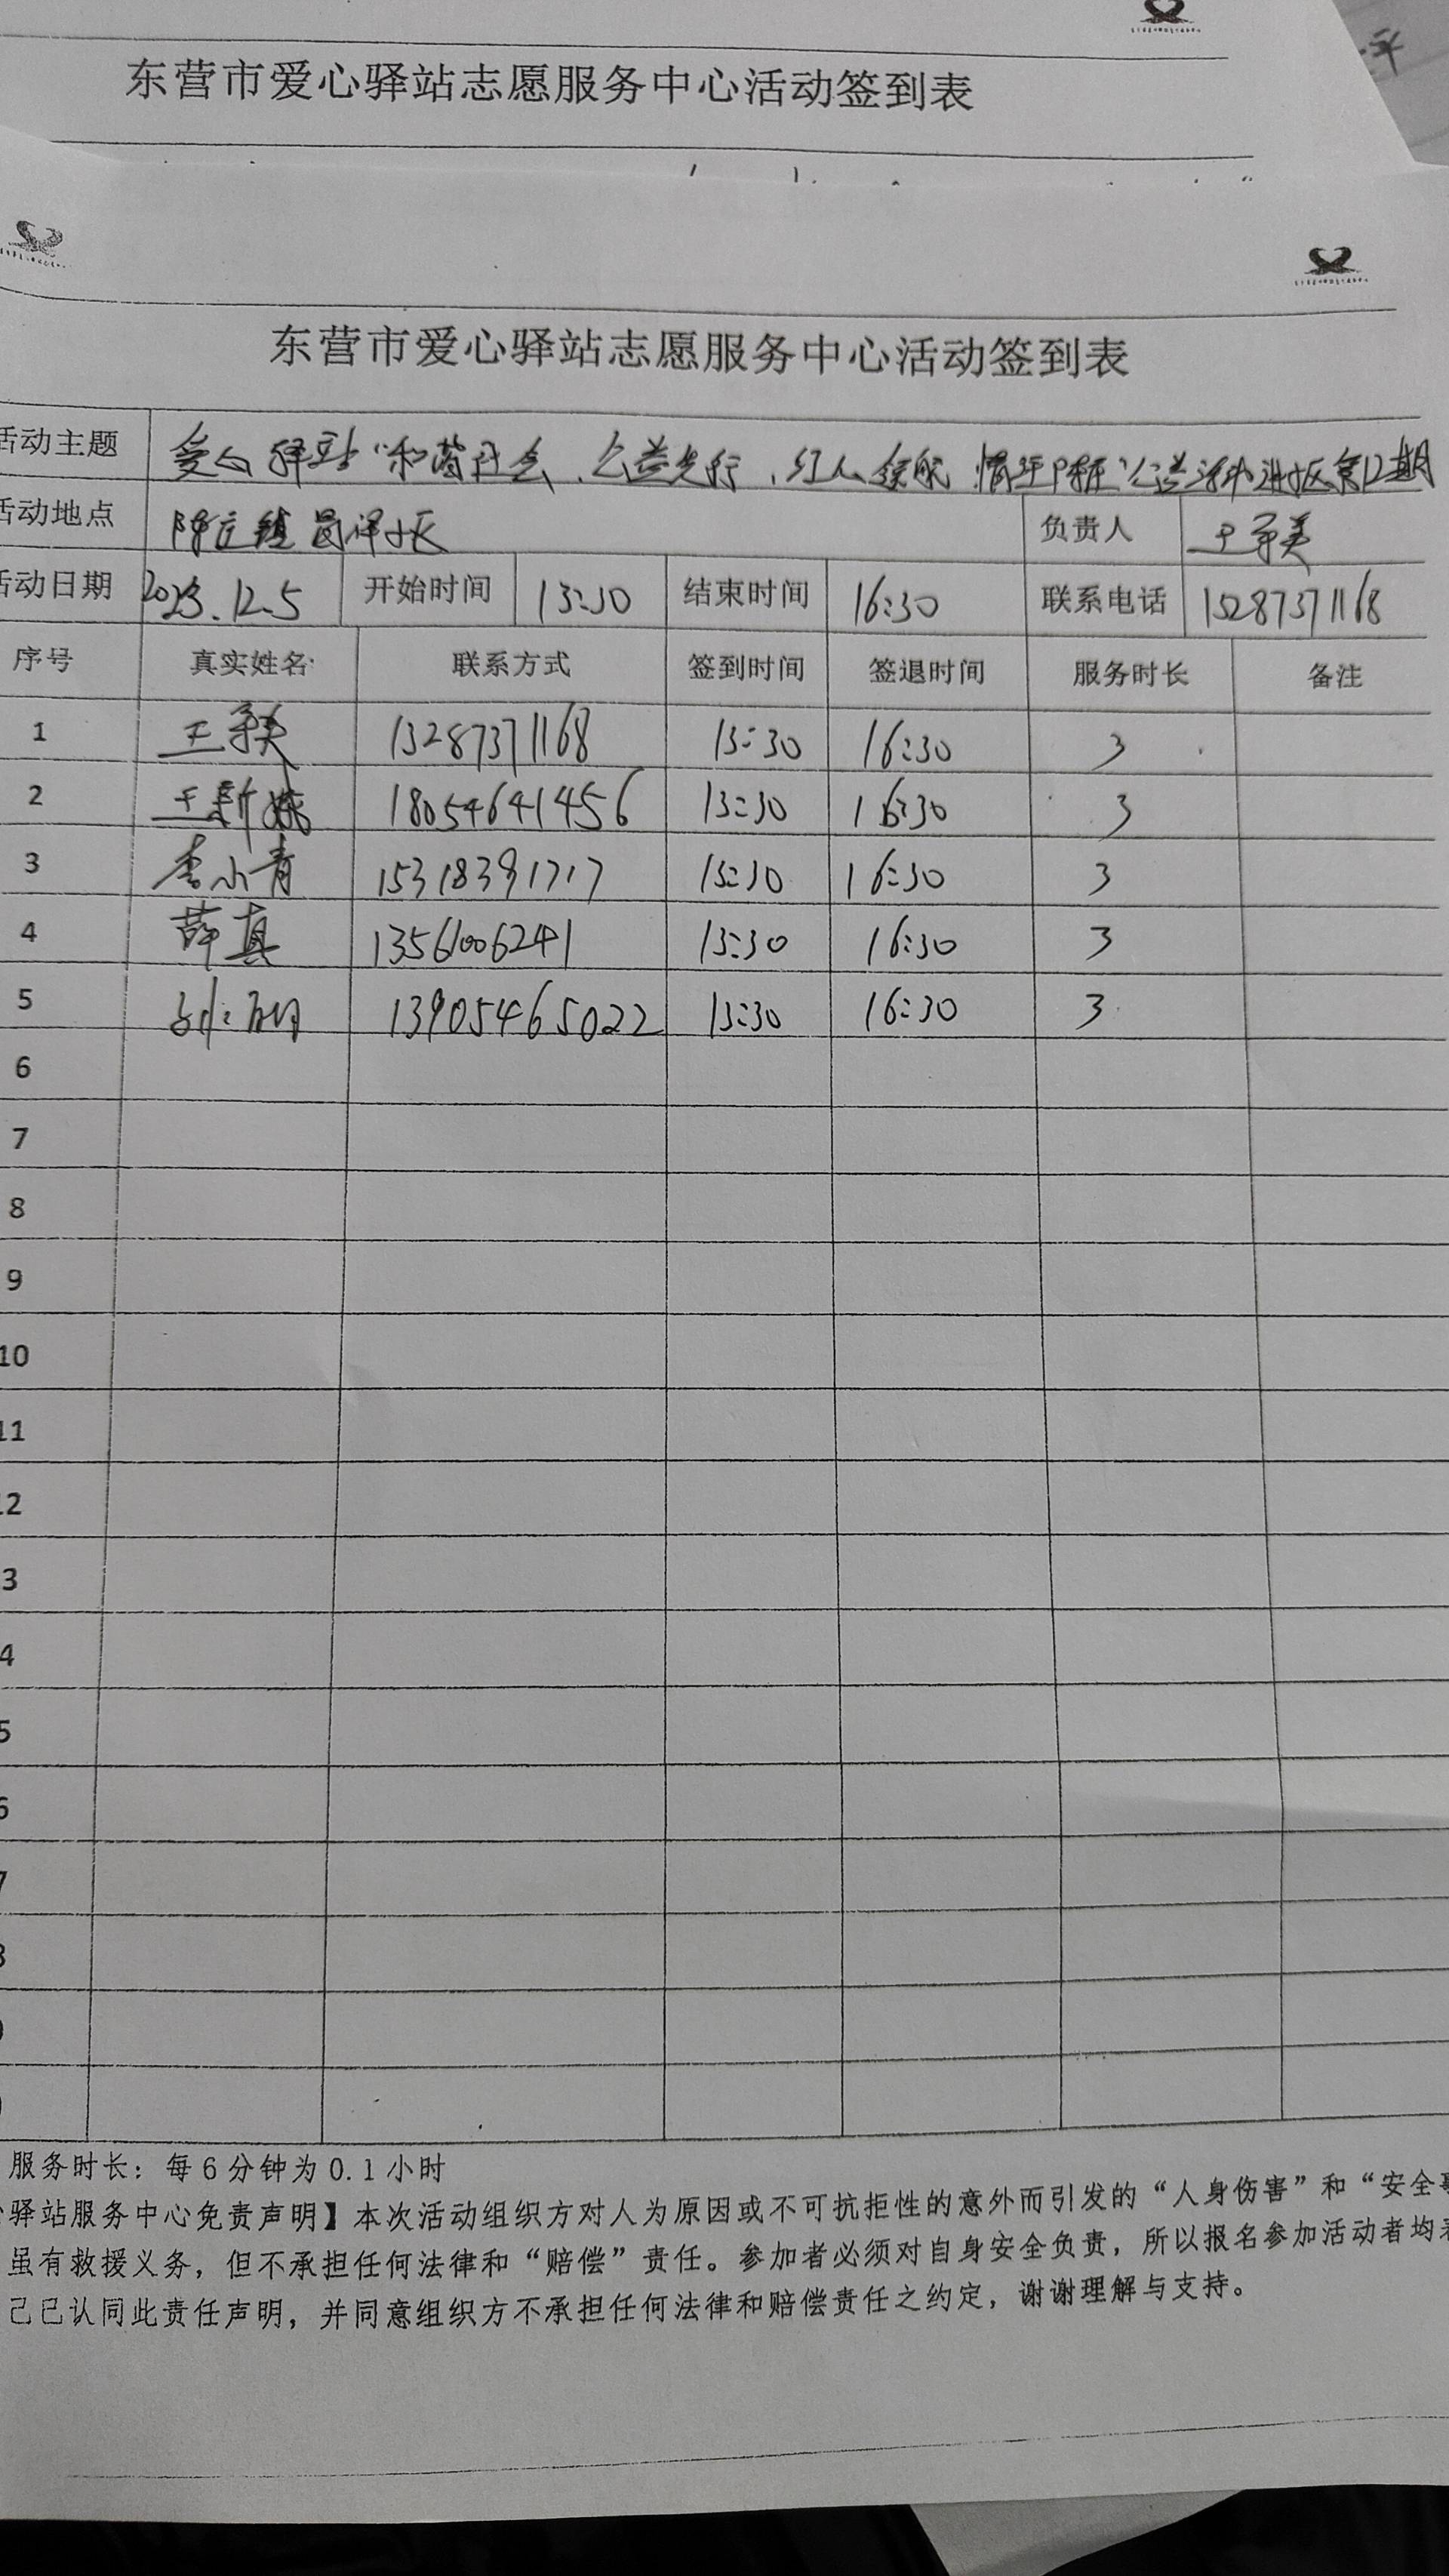 东营市爱心驿站志愿服务中心活动签到表
东营市爱心驿站志愿服务中心活动签到表
活动主题 爱心驿站“和谐社会、公益先行、红人续航 情 ”公益活动进社区第12期
活动地点 陈庄镇 社区 负责人 王 美
活动日期 2023.12.5 开始时间 13:30 结束时间 16:30 联系电话 13287371168
序号 真实姓名 联系方式 签到时间 签退时间 服务时长 备注
1 王 美 13287371168 13:30 16:30 3
2 王新 18054641456 13:30 16:30 3
3 李小青 15318391717 13:30 16:30 3
4 薛真 13561006241 13:30 16:30 3
5 13905465022 13:30 16:30 3
6
7
8
9
10
11
12
3
4
5
6
7
8
服务时长：每6分钟为0.1小时
驿站服务中心免责声明】本次活动组织方对人为原因或不可抗拒性的意外而引发的“人身伤害”和“安全事
虽有救援义务，但不承担任何法律和“赔偿”责任。参加者必须对自身安全负责，所以报名参加活动者均表
己已认同此责任声明，并同意组织方不承担任何法律和赔偿责任之约定，谢谢理解与支持。